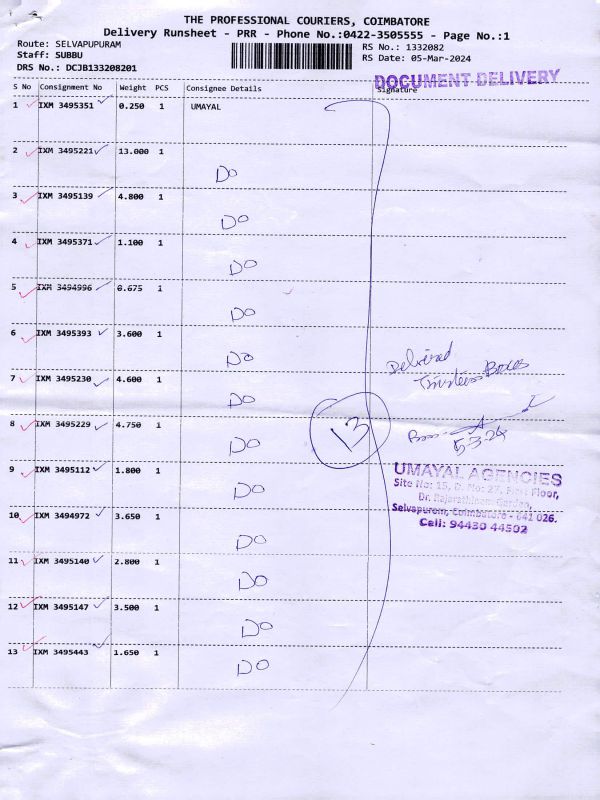 THE PROFESSIONAL COURIERS, COIMBATORE
Delivery Runsheet - PRR - Phone No.:0422-3505555 - Page No.:1
Route: SELVAPUPURAM
RS No.: 1332082
Staff: SUBBU
RS Date: 05-Mar-2024
DRS No.: DCJB133208201
DOCUMENT DELIVERY
S No Consignment No Weight PCS Consignee Details Signature
1 IXM 3495351 0.250 1 UMAYAL
2 IXM 3495221 13.000 1
Do
3 IXM 3495139 4.800 1
Do
4 IXM 3495371 1.100 1
Do
5 IXM 3494996 0.675 1
Do
6 IXM 3495393 3.600 1
Do
Delivered
Thirteen Boxes
7 IXM 3495230 4.600 1
Do
8 IXM 3495229 4.750 1
Do
13
5-3-24
9 IXM 3495112 1.800 1
Do
UMAYAL AGENCIES
Site No: 15, D. No: 27, First Floor,
Dr. Rajarathinam Garden,
Selvapuram, Coimbatore - 641 026.
Cell: 94430 44502
10 IXM 3494972 3.650 1
Do
11 IXM 3495140 2.800 1
Do
12 IXM 3495147 3.500 1
Do
13 IXM 3495443 1.650 1
Do